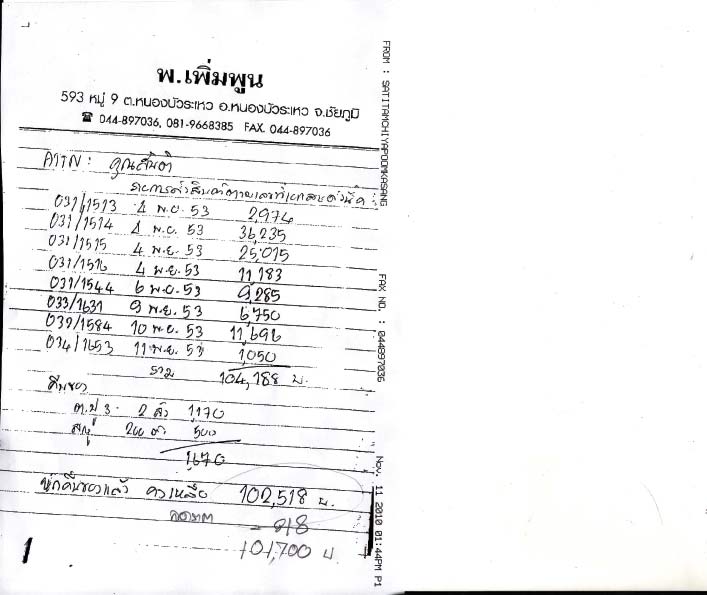 พ.เพิ่มพูน
593 หมู่ 9 ต.หนองบัวระเหว อ.หนองบัวระเหว จ.ชัยภูมิ
☎ 044-897036, 081-9668385 FAX. 044-897036
คุณสันติ
031/1513 4 พ.ย. 53 2,974
031/1514 4 พ.ย. 53 36,235
031/1515 4 พ.ย. 53 25,015
031/1516 4 พ.ย. 53 11,183
031/1544 6 พ.ย. 53 9,285
033/1631 9 พ.ย. 53 6,750
032/1584 10 พ.ย. 53 11,696
034/1653 11 พ.ย. 53 1,050
รวม 104,188 บ.
คืนของ
2 ตัว 1,170
สบู่ 200 500
1,670
หักคืนของแล้ว คงเหลือ 102,518 บ.
- 818
101,700 บ.
1
FROM : SATITAMCHIYAPOOMKASANG FAX NO. : 044897036 Nov. 11 2010 01:44PM P1